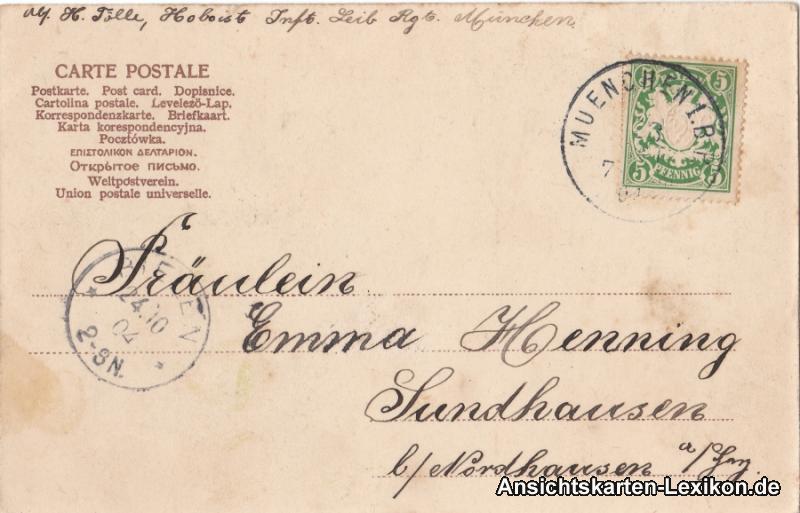 H. Tölle, Hoboist Inft. Leib Rgt. München.
CARTE POSTALE
Postkarte. Post card. Dopisnice.
Cartolina postale. Levelező-Lap.
Korrespondenzkarte. Briefkaart.
Karta korespondencyjna.
Pocztówka.
ΕΠΙΣΤΟΛΙΚΟΝ ΔΕΛΤΑΡΙΟΝ.
Открытое письмо.
Weltpostverein.
Union postale universelle.
MUENCHEN I.B.P.
7
5 5
5 5
PFENNIG
Fräulein
Emma Henning
Sundhausen
b/Nordhausen a/Hrz.
24.10
02
2-3N.
Ansichtskarten-Lexikon.de